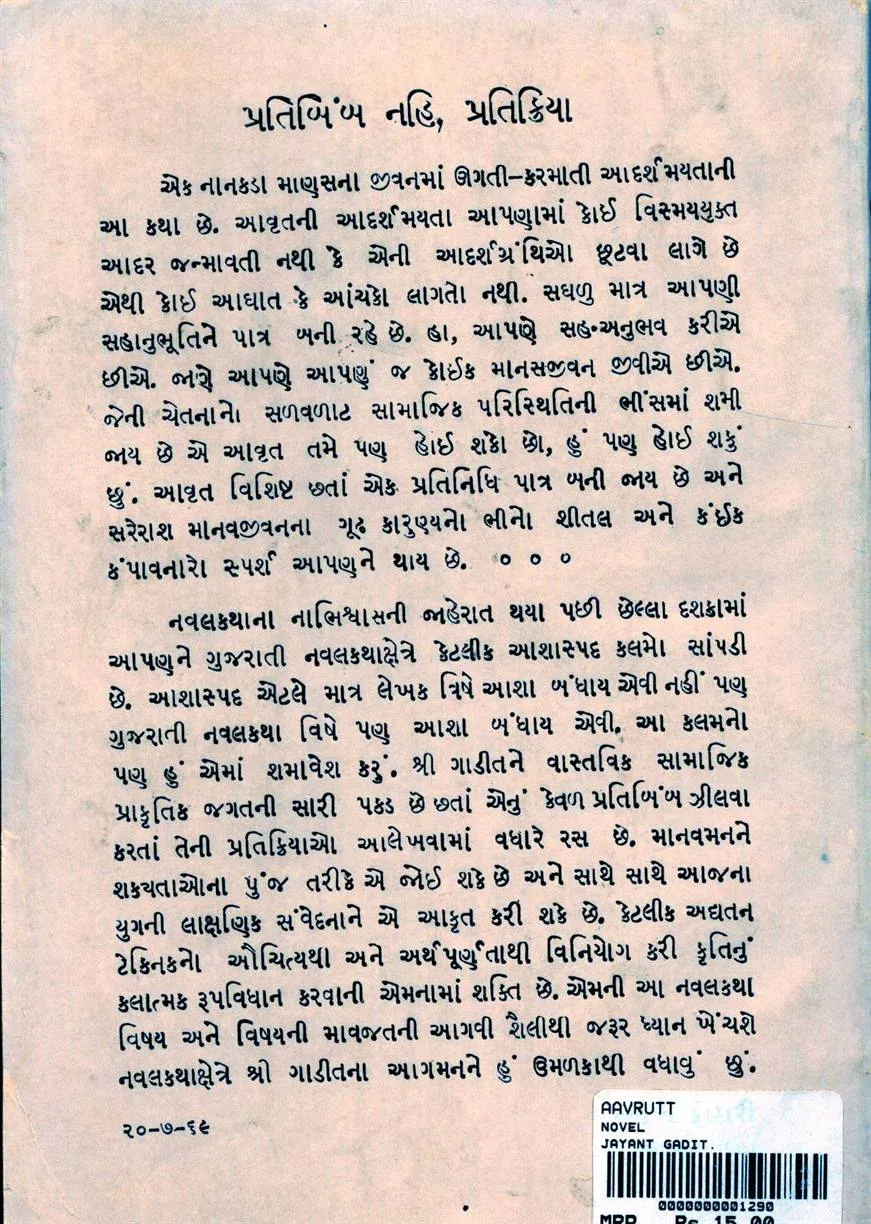 પ્રતિબિંબ નહિ, પ્રતિક્રિયા
એક નાનકડા માણસના જીવનમાં ઊગતી–કરમાતી આદર્શમયતાની
આ કથા છે. આવૃતની આદર્શમયતા આપણામાં કોઈ વિસ્મયયુક્ત
આદર જન્માવતી નથી કે એની આદર્શગ્રંથિઓ છૂટવા લાગે છે
એથી કોઈ આઘાત કે આંચકો લાગતો નથી. સઘળુ માત્ર આપણી
સહાનુભૂતિને પાત્ર બની રહે છે. હા, આપણે સહ-અનુભવ કરીએ
છીએ. જાણે આપણે આપણું જ કોઈક માનસજીવન જીવીએ છીએ.
જેની ચેતનાનો સળવળાટ સામાજિક પરિસ્થિતિની ભીંસમાં શમી
જાય છે એ આવૃત તમે પણ હોઈ શકો છો, હું પણ હોઈ શકું
છું. આવૃત વિશિષ્ટ છતાં એક પ્રતિનિધિ પાત્ર બની જાય છે અને
સરેરાશ માનવજીવનના ગૂઢ કારુણ્યનો ભીનો શીતલ અને કંઈક
કંપાવનારો સ્પર્શ આપણને થાય છે. ૦ ૦ ૦
નવલકથાના નાભિશ્વાસની જાહેરાત થયા પછી છેલ્લા દશકામાં
આપણને ગુજરાતી નવલકથાક્ષેત્રે કેટલીક આશાસ્પદ કલમો સાંપડી
છે. આશાસ્પદ એટલે માત્ર લેખક વિષે આશા બંધાય એવી નહીં પણ
ગુજરાતી નવલકથા વિષે પણ આશા બંધાય એવી. આ કલમનો
પણ હું એમાં શમાવેશ કરું. શ્રી ગાડીતને વાસ્તવિક સામાજિક
પ્રાકૃતિક જગતની સારી પકડ છે છતાં એનું કેવળ પ્રતિબિંબ ઝીલવા
કરતાં તેની પ્રતિક્રિયાઓ આલેખવામાં વધારે રસ છે. માનવમનને
શકયતાઓના પુંજ તરીકે એ જોઈ શકે છે અને સાથે સાથે આજના
યુગની લાક્ષણિક સંવેદનાને એ આકૃત કરી શકે છે. કેટલીક અદ્યતન
ટેક્નિકનો ઔચિત્યથી અને અર્થપૂર્ણતાથી વિનિયોગ કરી કૃતિનું
કલાત્મક રૂપવિધાન કરવાની એમનામાં શક્તિ છે. એમની આ નવલકથા
વિષય અને વિષયની માવજતની આગવી શૈલીથી જરૂર ધ્યાન ખેંચશે
નવલકથાક્ષેત્રે શ્રી ગાડીતના આગમનને હું ઉમળકાથી વધાવું છું.
૨૦-૭-૬૯
AAVRUTT
NOVEL
JAYANT GADIT.
0000000001290
MRP Rs 15.00